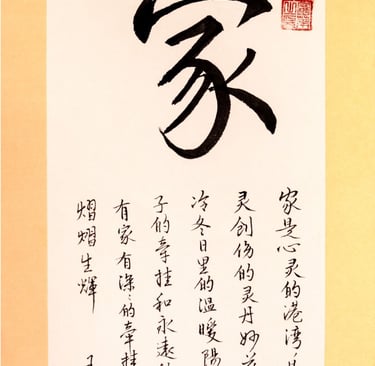 家
家是心灵的港湾
灵创伤的灵丹妙药
冷冬日里的温暖陽
子的牵挂和永遠
有家有深〻的牵挂
熠熠生輝